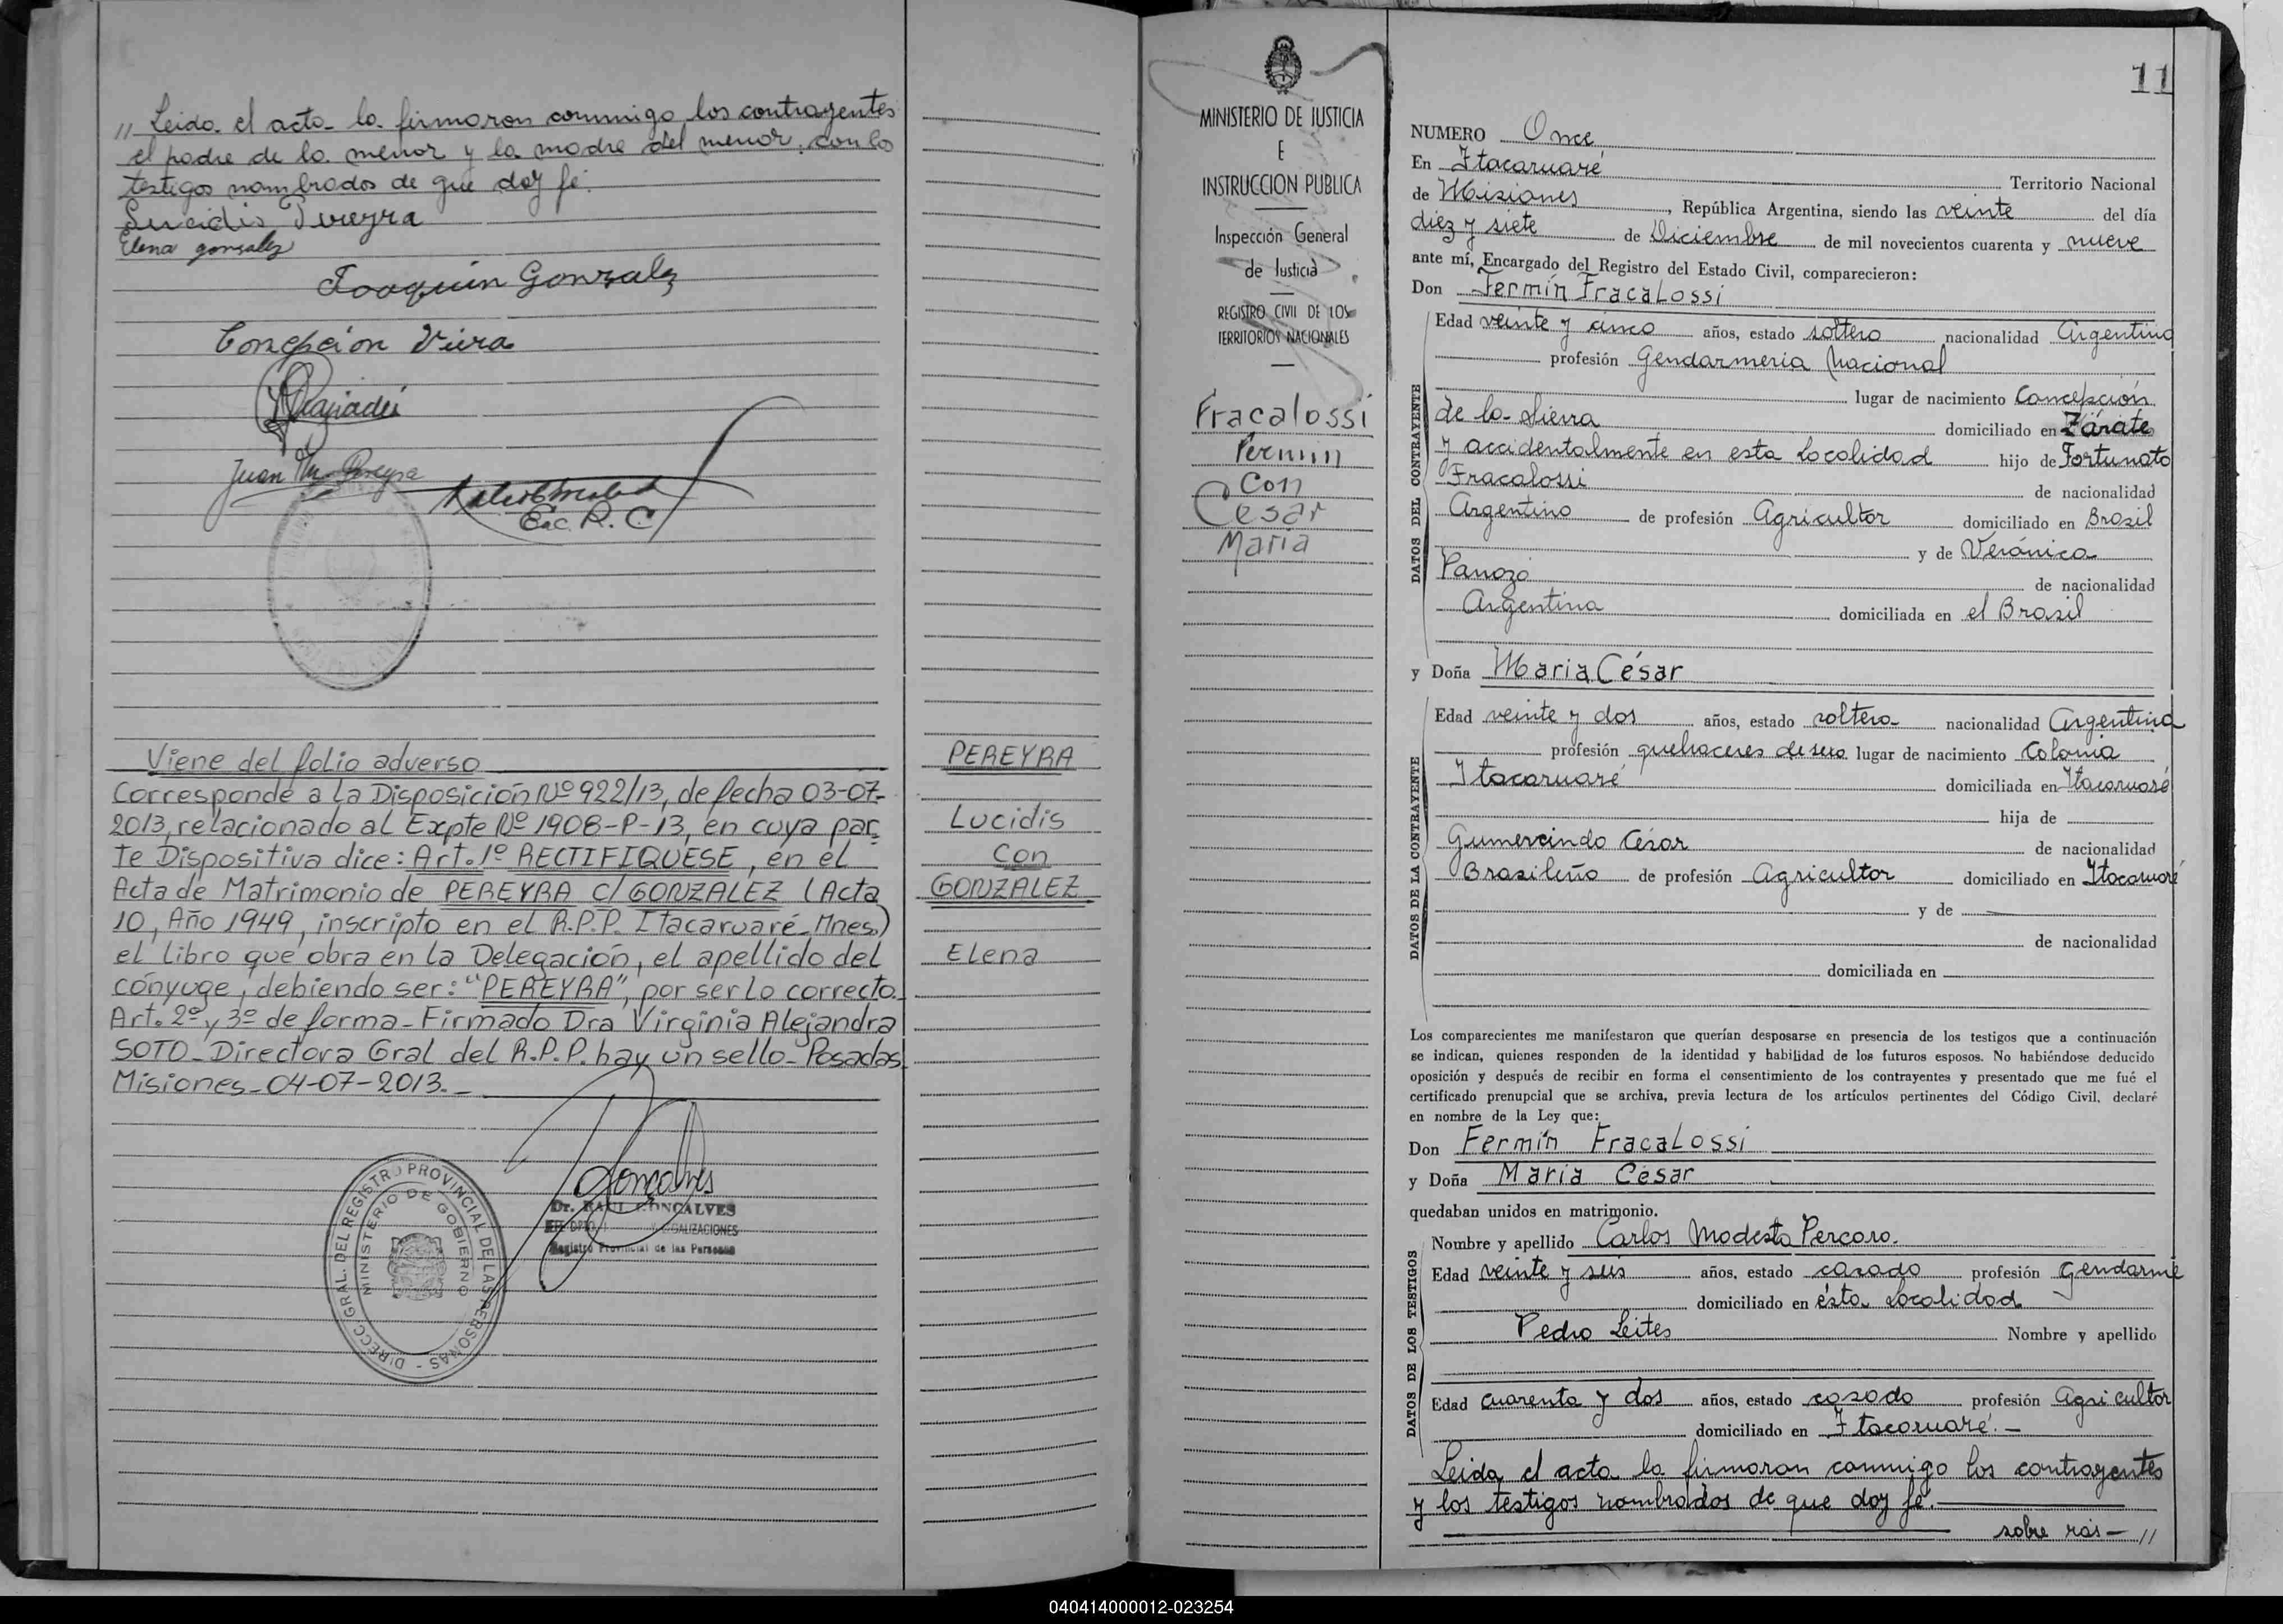 // Leida el acta la firmaron conmigo los contrayentes
el padre de la menor y la madre del menor, con los
testigos nombrados de que doy fé.
Lucidis Pereyra
Elena gonsalez
Joaquin Gonzalez
Concepción Viera
Juan M. Pereyra
Enc. R. C.
Viene del folio adverso
Corresponde a la Disposición Nº 922/13, de fecha 03-07-
2013, relacionado al Expte Nº 1908-P-13, en cuya par
te Dispositiva dice: Art. 1º RECTIFIQUESE, en el
Acta de Matrimonio de PEREYRA C/ GONZALEZ (Acta
10, Año 1949, inscripto en el R.P.P. Itacaruaré-Mnes.)
el libro que obra en la Delegación, el apellido del
cónyuge, debiendo ser: "PEREYRA", por ser lo correcto.
Art. 2º y 3º de forma - Firmado Dra Virginia Alejandra
SOTO - Directora Gral del R.P.P. hay un sello - Posadas
Misiones - 04-07-2013. -
PEREYRA
Lucidis
Con
GONZALEZ
Elena
DIRECC. GRAL. DEL REGISTRO PROVINCIAL DE LAS PERSONAS -
MINISTERIO DE GOBIERNO
Dr. RAUL GONCALVES
Registro Provincial de las Personas
MINISTERIO DE JUSTICIA
E
INSTRUCCION PUBLICA
Inspección General
de Justicia
REGISTRO CIVIL DE LOS
TERRITORIOS NACIONALES
Fracalossi
Fermin
Con
Cesar
Maria
11
NUMERO Once
En Itacaruaré
Territorio Nacional
de Misiones, República Argentina, siendo las veinte del día
diez y siete de Diciembre de mil novecientos cuarenta y nueve
ante mí, Encargado del Registro del Estado Civil, comparecieron:
Don Fermín Fracalossi
DATOS DEL CONTRAYENTE
Edad veinte y cinco años, estado soltero nacionalidad Argentino
profesión Gendarmeria Nacional
lugar de nacimiento Concepción
de la Sierra domiciliado en Zárate
y accidentalmente en esta Localidad hijo de Fortunato
Fracalossi de nacionalidad
Argentino de profesión Agricultor domiciliado en Brasil
y de Verónica
Panozo de nacionalidad
Argentina domiciliada en el Brasil
y Doña Maria César
DATOS DE LA CONTRAYENTE
Edad veinte y dos años, estado soltera nacionalidad Argentina
profesión quehaceres de su sexo lugar de nacimiento Colonia
Itacaruaré domiciliada en Itacaruaré
hija de
Gumercindo César de nacionalidad
Brasileño de profesión Agricultor domiciliado en Itacaruaré
y de
de nacionalidad
domiciliada en
Los comparecientes me manifestaron que querían desposarse en presencia de los testigos que a continuación
se indican, quienes responden de la identidad y habilidad de los futuros esposos. No habiéndose deducido
oposición y después de recibir en forma el consentimiento de los contrayentes y presentado que me fué el
certificado prenupcial que se archiva, previa lectura de los artículos pertinentes del Código Civil, declaré
en nombre de la Ley que:
Don Fermín Fracalossi
y Doña Maria César
quedaban unidos en matrimonio.
DATOS DE LOS TESTIGOS
Nombre y apellido Carlos Modesto Percoro.
Edad veinte y seis años, estado casado profesión Gendarme
domiciliado en ésta Localidad
Pedro Leites Nombre y apellido
Edad cuarenta y dos años, estado casado profesión Agricultor
domiciliado en Itacaruaré. -
Leida el acta la firmaron conmigo los contrayentes
y los testigos nombrados de que doy fé.
sobre ras - //
040414000012-023254